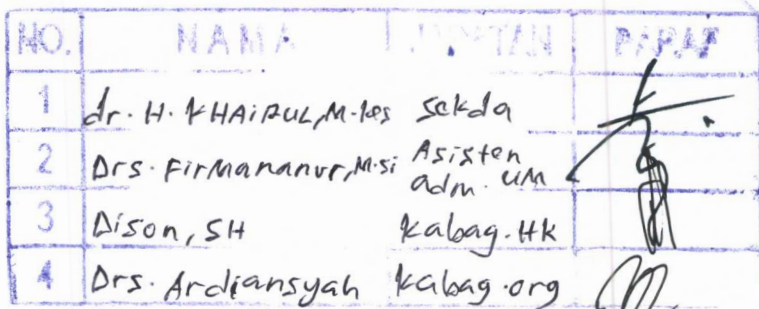 NO. NAMA JABATAN PARAF
1 dr. H. KHAIRUL, M.kes Sekda
2 Drs. Firmananur, M.si Asisten adm. UM
3 Dison, SH Kabag. Hk
4 Drs. Ardiansyah Kabag. org